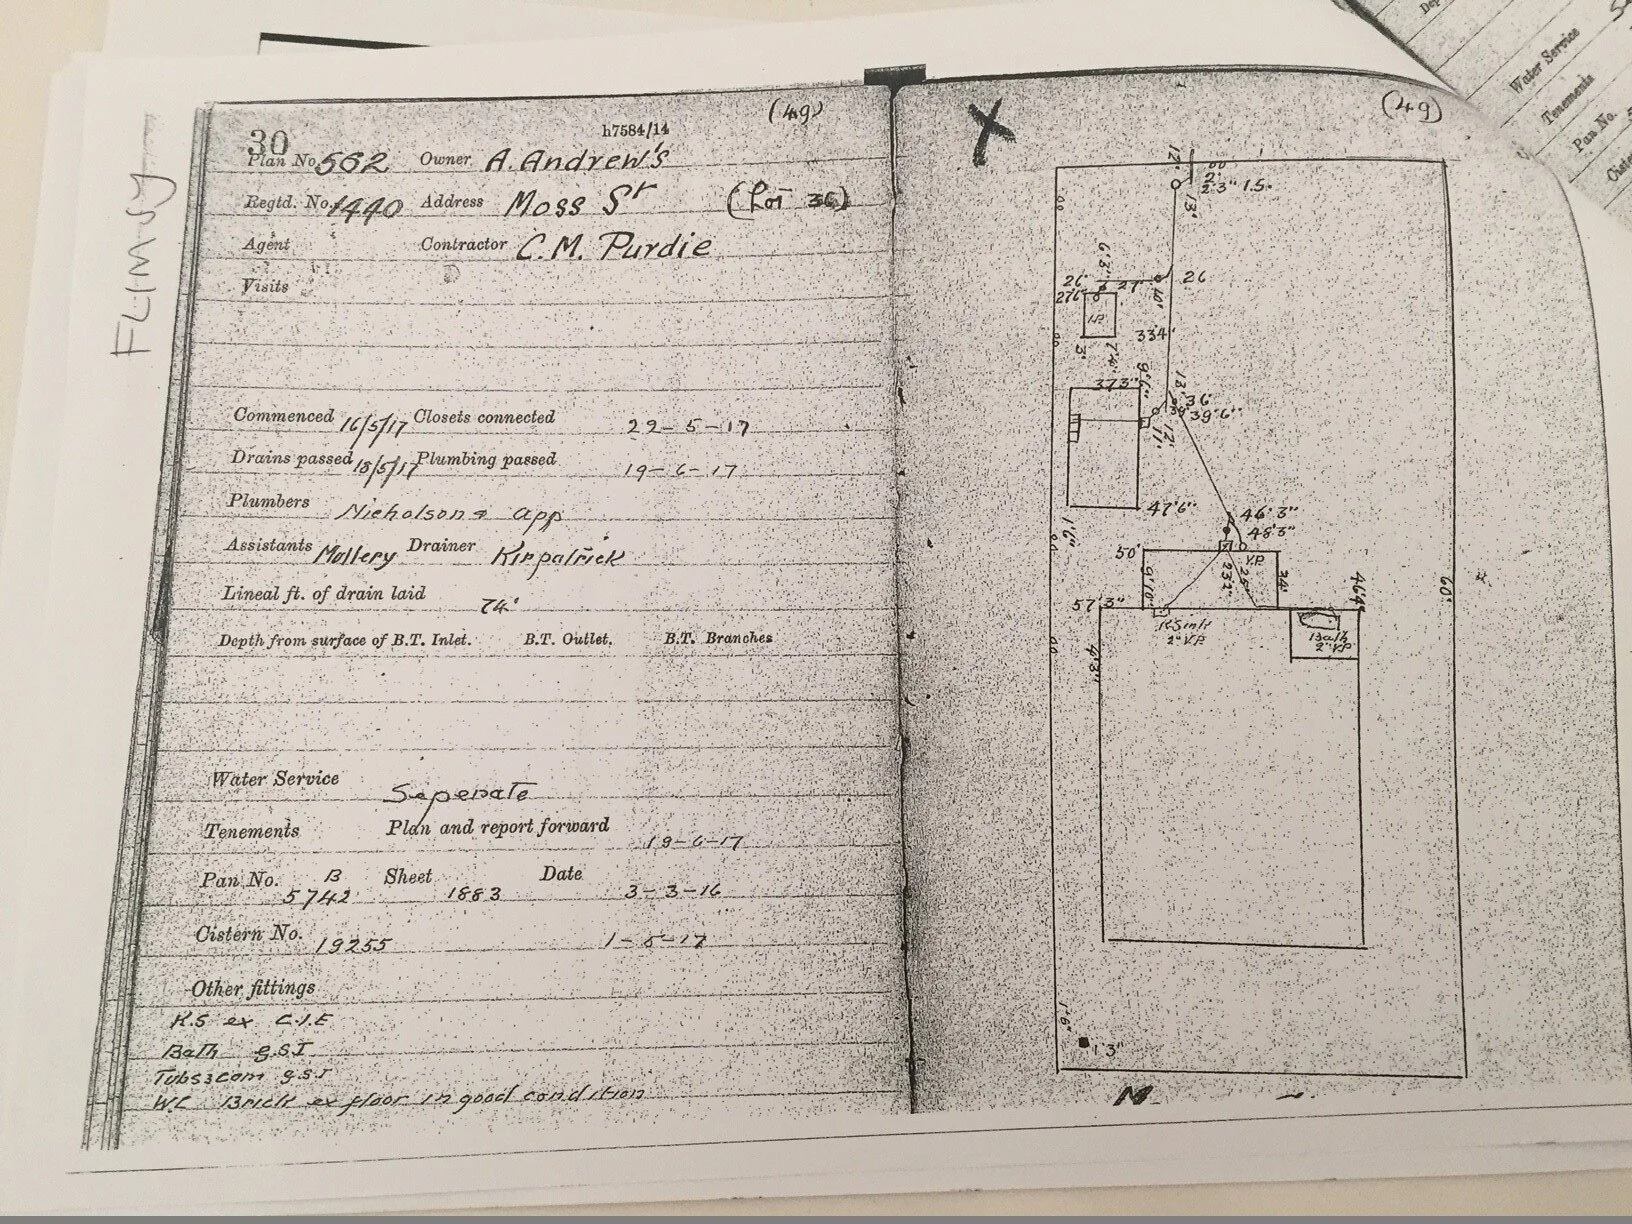 FLIMSY
30
h7584/14
(49)
Plan No. 562 Owner A. Andrew's
Regtd. No. 1440 Address Moss St (Lot 36)
Agent Contractor C.M. Purdie
Visits
Commenced 16/5/17 Closets connected 29-5-17
Drains passed 18/5/17 Plumbing passed 19-6-17
Plumbers Nicholson & app
Assistants Mollery Drainer Kirpatrick
Lineal ft. of drain laid 74'
Depth from surface of B.T. Inlet. B.T. Outlet. B.T. Branches
Water Service Seperate
Tenements Plan and report forward 19-6-17
Pan No. B 5742 Sheet 1883 Date 3-3-16
Cistern No. 19255 1-5-17
Other fittings
K.S ex C.I.E
Bath g.S.I
Tubs 3 com g.S.I
WC Brick ex floor in good condition
X
(49)
12'
2'
2'3" 1.5.
13'
6'3"
26' 27' 26
27'6"
10'
33'4"
3'
7'4"
9'6"
37'3"
13'
36'
39'6"
11' 12'
47'6"
46'3"
48'3"
1'6"
50'
V.P.
9'10"
23'2"
25'
34'
46'4"
60'
57'3"
K Sink
2" V.P.
Bath
2" V.P
4'3"
1'6"
1'3"
M
Water Service
Tenements
Pan No.